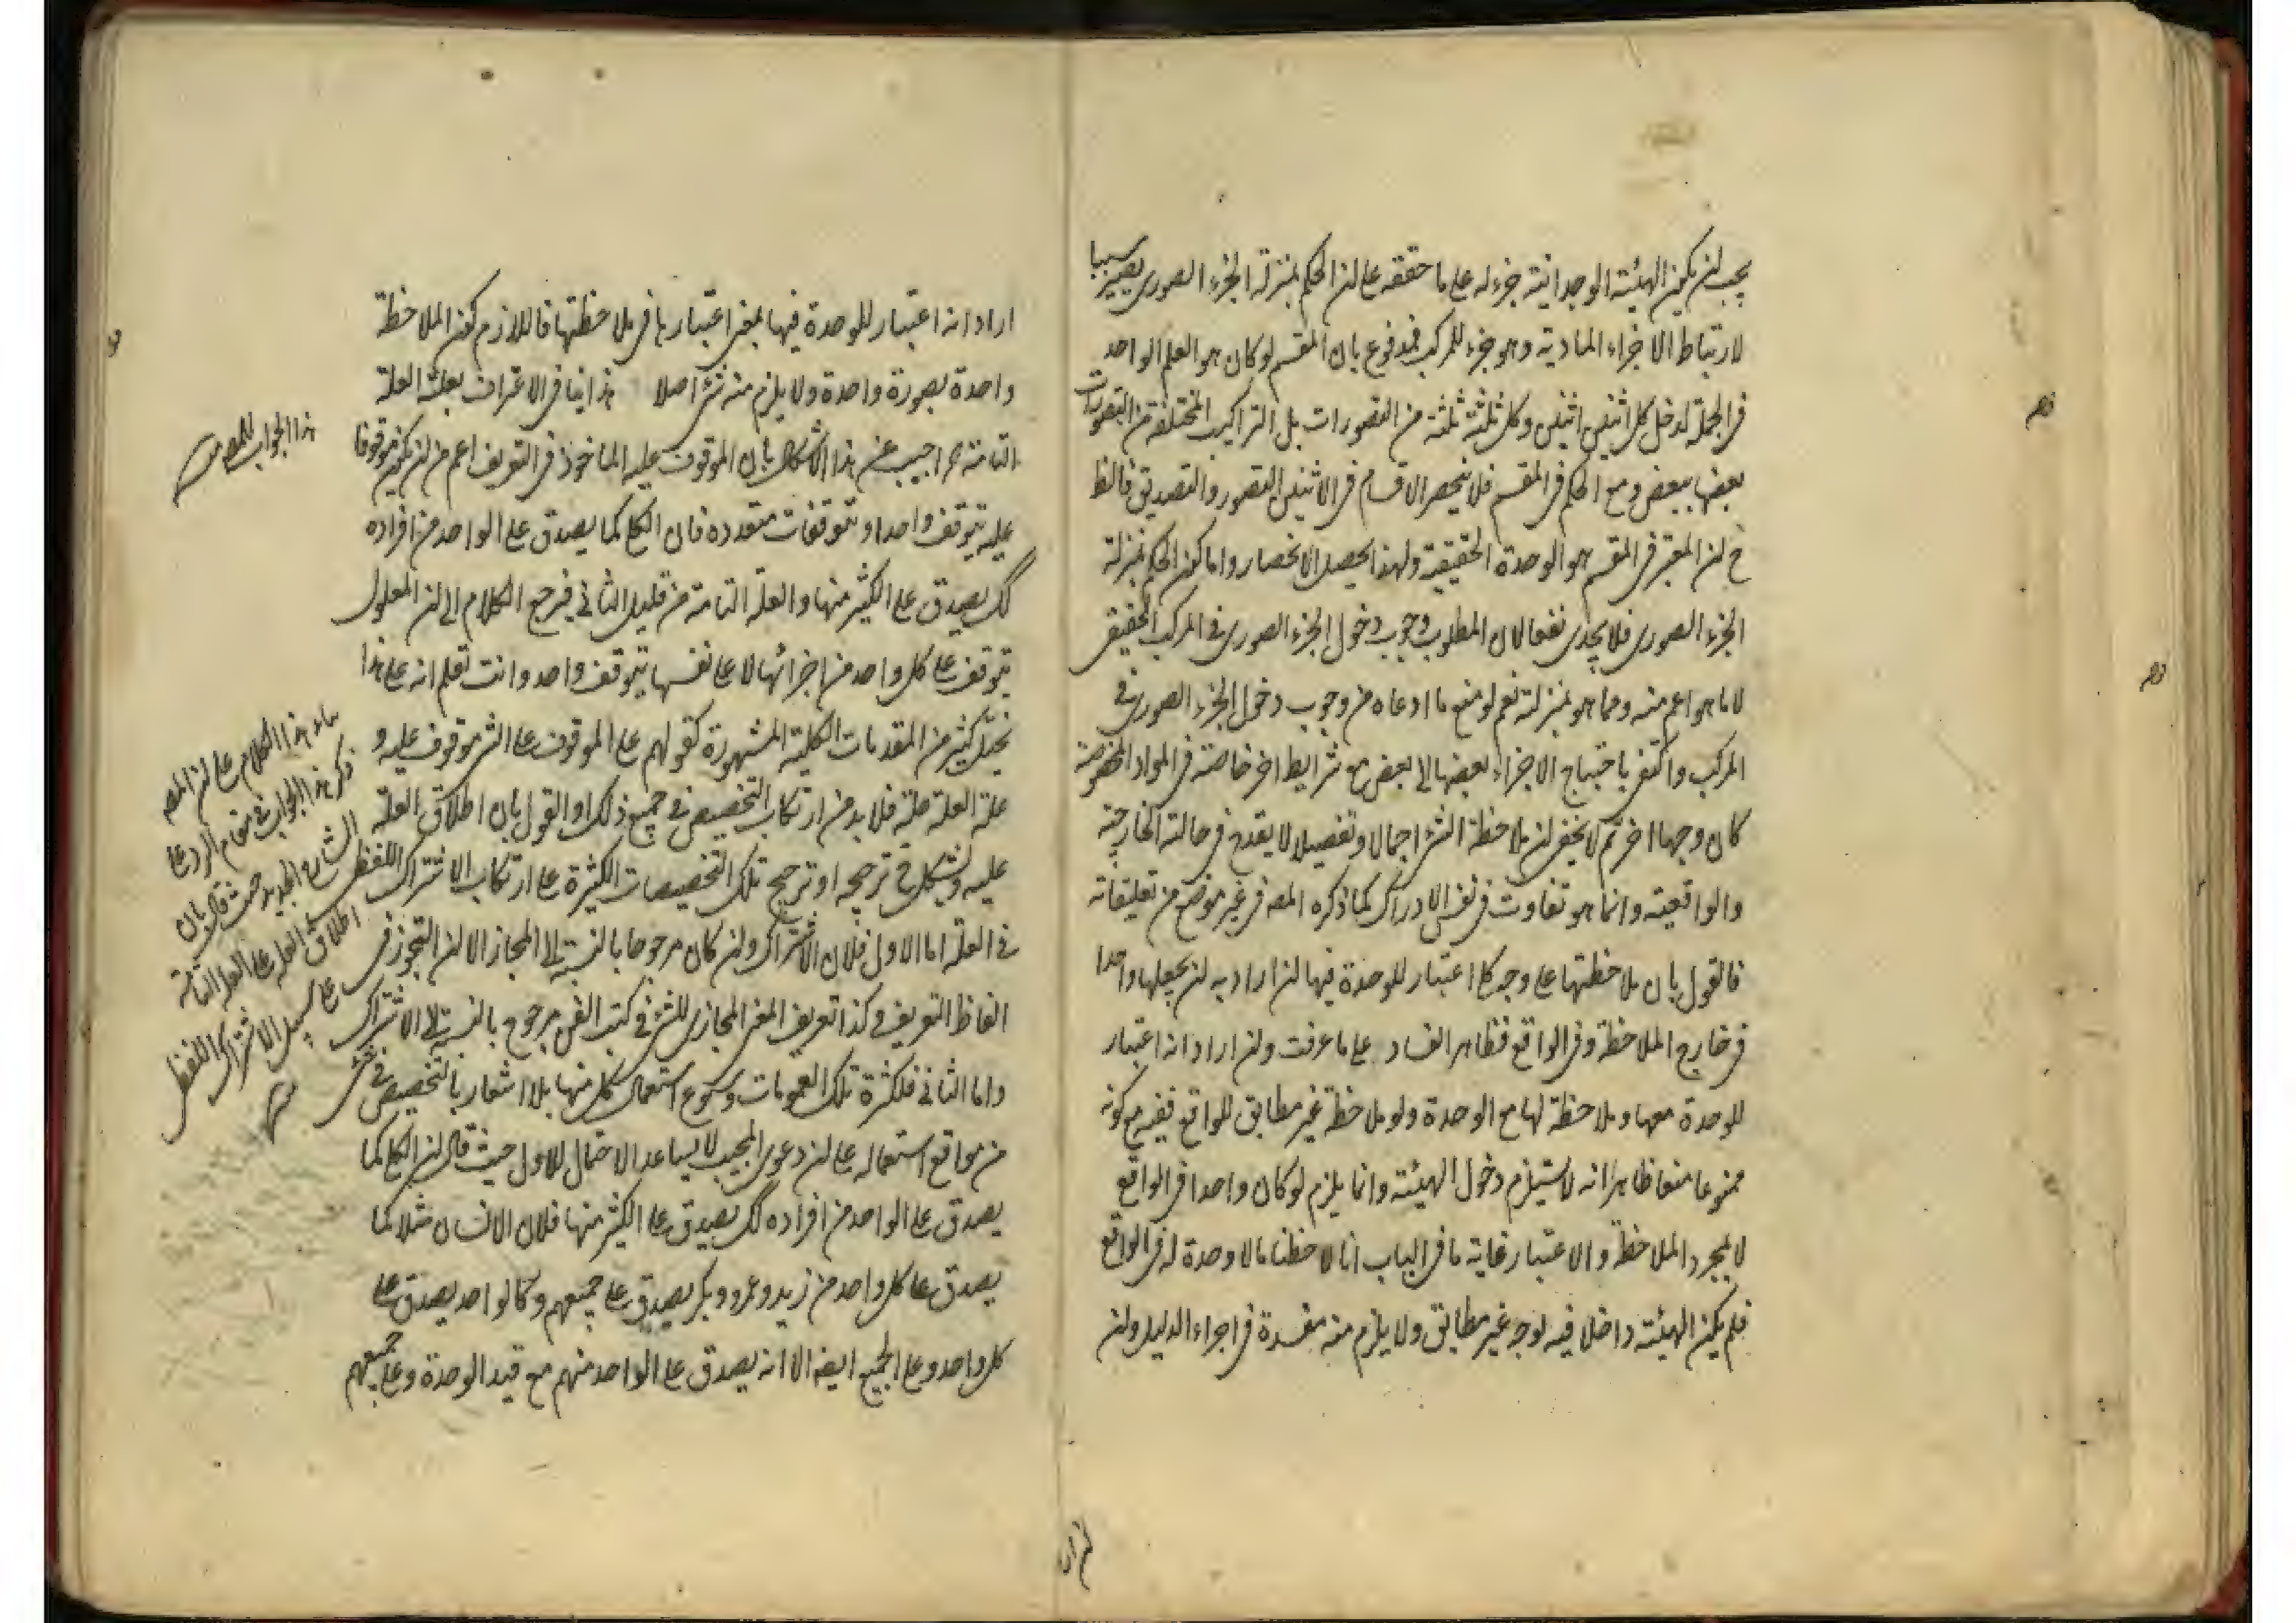 يجب ان يكون الهيئة الوحدانية جزء له على ما حققه على ان الحكم بمنزلة الجزء الصورى يصير سببا
لارتباط الاجزاء المادية وهو جزء للمركب فمدفوع بان المقسم لو كان هو العلم الواحد
فى الجملة لدخل كل اثنين اثنين وكل ثلثة ثلثة من التصورات بل التراكيب المختلفة من التصورات
بعضها ببعض ومع الحكم فى المقسم فلا ينحصر الاقسام فى الاثنين التصور والتصديق فالظ
ح ان المعتبر فى المقسم هو الوحدة الحقيقية ولهذا يحصل الانحصار واما كون الحكم بمنزلة
الجزء الصورى فلا يجدى نفعا لان المطلوب وجوب دخول الجزء الصورى فى المركب الحقيقى
لا ما هو اعم منه ومما هو بمنزلته نعم لو منع ما ادعاه من وجوب دخول الجزء الصورى فى
المركب واكتفى باحتياج الاجزاء بعضها الى بعض مع شرايط اخر خاصة فى المواد المخصوصة
كان وجها اخر ثم لا يخفى ان ملاحظة الشئ اجمالا وتفصيلا لا يقدح فى حالته الخارجية
والواقعية وانما هو تفاوت فى نفس الادراك كما ذكره المصه فى غير موضع من تعليقاته
فالقول بان ملاحظتها على وجه كل اعتبار للوحدة فيها ان اراد به ان يجعلها واحدا
فى خارج الملاحظة وفى الواقع فظاهر الفساد على ما عرفت وان اراد انه اعتبار
للوحدة معها وملاحظة لها مع الوحدة ولو ملاحظة غير مطابق للواقع ففيه مع كونه
ممنوعا منعا ظاهرا انه لا يستلزم دخول الهيئة وانما يلزم لو كان واحدا فى الواقع
لا بمجرد الملاحظة والاعتبار غاية ما فى الباب انا لاحظنا ما لا وحدة له فى الواقع
فلم يكن الهيئة داخلا فيه لوجه غير مطابق ولا يلزم منه مفسدة فى اجراء الدليل وان
اراد انه اعتبار للوحدة فيها بمعنى اعتبارها فى ملاحظتها فاللازم كون الملاحظة
واحدة بصورة واحدة ولا يلزم منه شئ اصلا هذا ينافى الاعتراف بعلية العلة
التامة ثم اجيب عن هذا الاشكال بان الموقوف عليه الماخوذ فى التعريف اعم من ان يكون موقوفا
عليه بتوقف واحد او بتوقفات متعددة فان الكلى كما يصدق على الواحد من افراده
كك يصدق على الكثير منها والعلة التامة من قبيل الثانى فيرجع الكلام الى ان المعلول
يتوقف على كل واحد من اجزائها لا على نفسها بتوقف واحد وانت تعلم انه على هذا
يختل كثير من المقدمات الكلية المشهورة كقولهم على الموقوف على الشئ موقوف عليه و
علة العلة علة فلا بد من ارتكاب التخصيص فى جميع ذلك او القول بان اطلاق العلة
عليه ويشكل فى ترجيحه او ترجيح تلك التخصيصات الكثيرة على ارتكاب الاشتراك اللفظى
فى العلة اما الاول فلان الاشتراك وان كان مرجوحا بالنسبة الى المجاز الا ان التجوز فى
الفاظ التعريف وكذا تعريف المعنى المجازى للشئ فى كتب الفن مرجوح بالنسبة الى الاشتراك
واما الثانى فلكثرة تلك العمومات وشيوع استعمال كل منها بلا اشعار بالتخصيص فى شئ
من مواقع استعماله على ان دعوى المجيب لا يساعد الاحتمال الاول حيث قال ان الكلى كما
يصدق على الواحد من افراده كك يصدق على الكثير منها فلان الانسان مثلا كما
يصدق على كل واحد من زيد وعمرو وبكر يصدق على جميعهم وكالواحد يصدق على
كل واحد وعلى الجميع ايضه الا انه يصدق على الواحد منهم مع قيد الوحدة وعلى جميعهم
هذا الجواب للمصه
بناء هذا الكلام على ان المصه
ذكر هذا الجواب فى مقام الرد على
الشارح الجديد حيث قال بان
اطلاق العلة على العلة التامة
على سبيل الاشتراك اللفظى